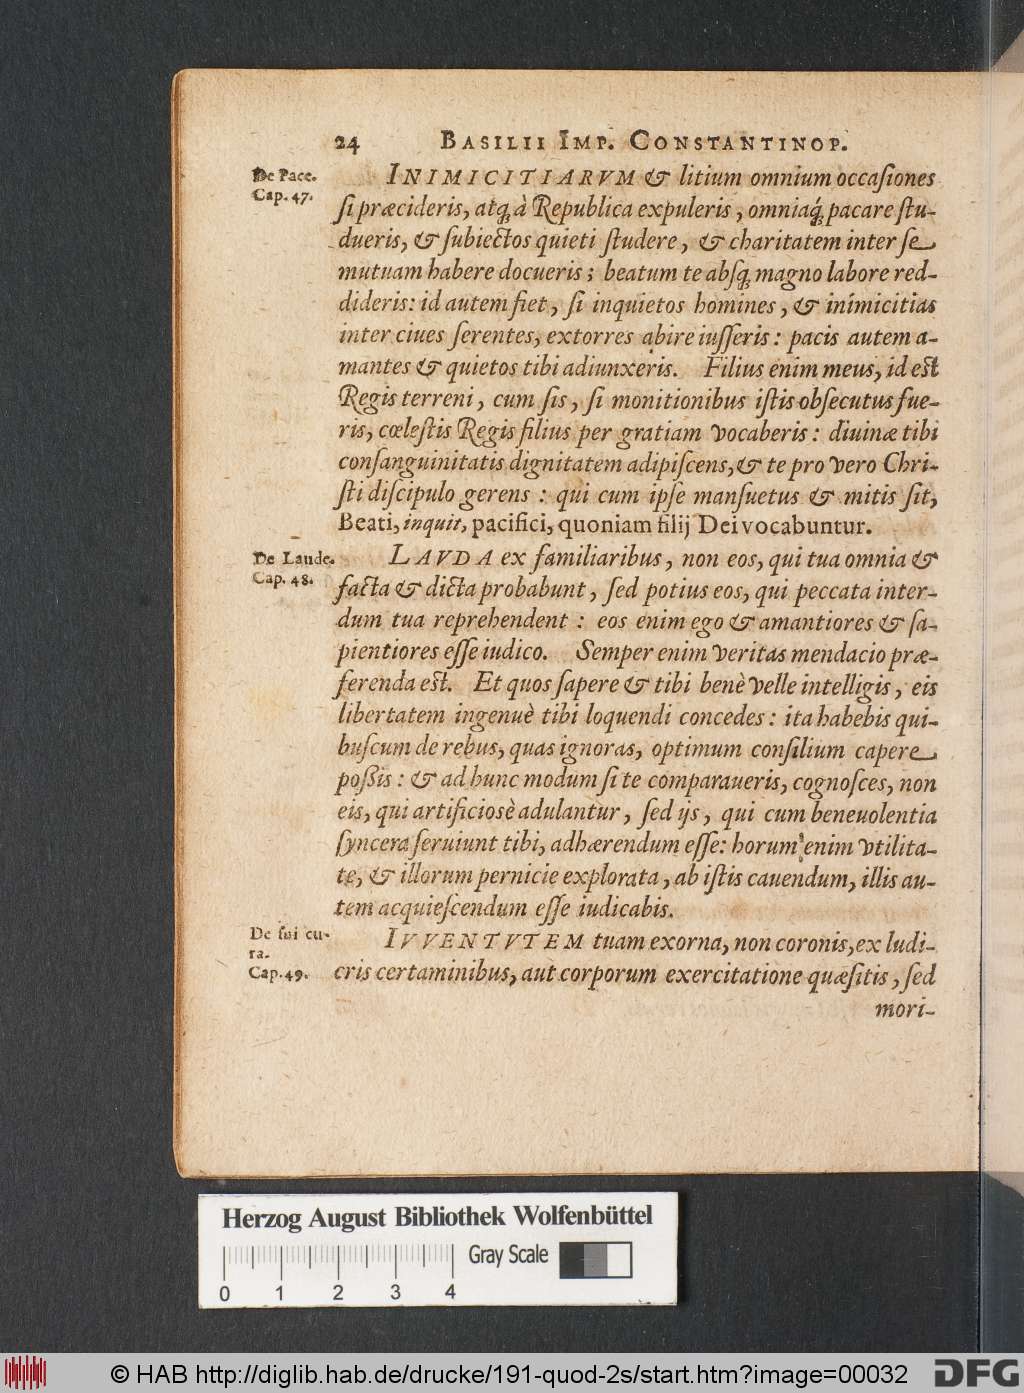 24 BASILII IMP. CONSTANTINOP.
De Pace.
Cap. 47.
INIMICITIARVM & litium omnium occaſiones
ſi præcideris, atq; à Republica expuleris, omniaq́; pacare ſtu-
dueris, & ſubiectos quieti ſtudere, & charitatem inter ſe
mutuam habere docueris; beatum te abſq; magno labore red-
dideris: id autem fiet, ſi inquietos homines, & inimicitias
inter ciues ſerentes, extorres abire iuſſeris: pacis autem a-
mantes & quietos tibi adiunxeris. Filius enim meus, id eſt
Regis terreni, cum ſis, ſi monitionibus iſtis obſecutus fue-
ris, cœleſtis Regis filius per gratiam vocaberis: diuinæ tibi
conſanguinitatis dignitatem adipiſcens, & te pro vero Chri-
ſti diſcipulo gerens: qui cum ipſe manſuetus & mitis ſit,
Beati, inquit, pacifici, quoniam filij Dei vocabuntur.
De Laude.
Cap. 48.
LAVDA ex familiaribus, non eos, qui tua omnia &
facta & dicta probabunt, ſed potius eos, qui peccata inter-
dum tua reprehendent: eos enim ego & amantiores & ſa-
pientiores eſſe iudico. Semper enim veritas mendacio præ-
ferenda eſt. Et quos ſapere & tibi benè velle intelligis, eis
libertatem ingenuè tibi loquendi concedes: ita habebis qui-
buſcum de rebus, quas ignoras, optimum conſilium capere
poßis: & ad hunc modum ſi te comparaueris, cognoſces, non
eis, qui artificiosè adulantur, ſed ijs, qui cum beneuolentia
ſyncera ſeruiunt tibi, adhærendum eſſe: horum enim vtilita-
te, & illorum pernicie explorata, ab iſtis cauendum, illis au-
tem acquieſcendum eſſe iudicabis.
De ſui cu-
ra.
Cap. 49.
IVVENTVTEM tuam exorna, non coronis, ex ludi-
cris certaminibus, aut corporum exercitatione quæſitis, ſed
mori-
Herzog August Bibliothek Wolfenbüttel
Gray Scale
0 1 2 3 4
© HAB http://diglib.hab.de/drucke/191-quod-2s/start.htm?image=00032
DFG